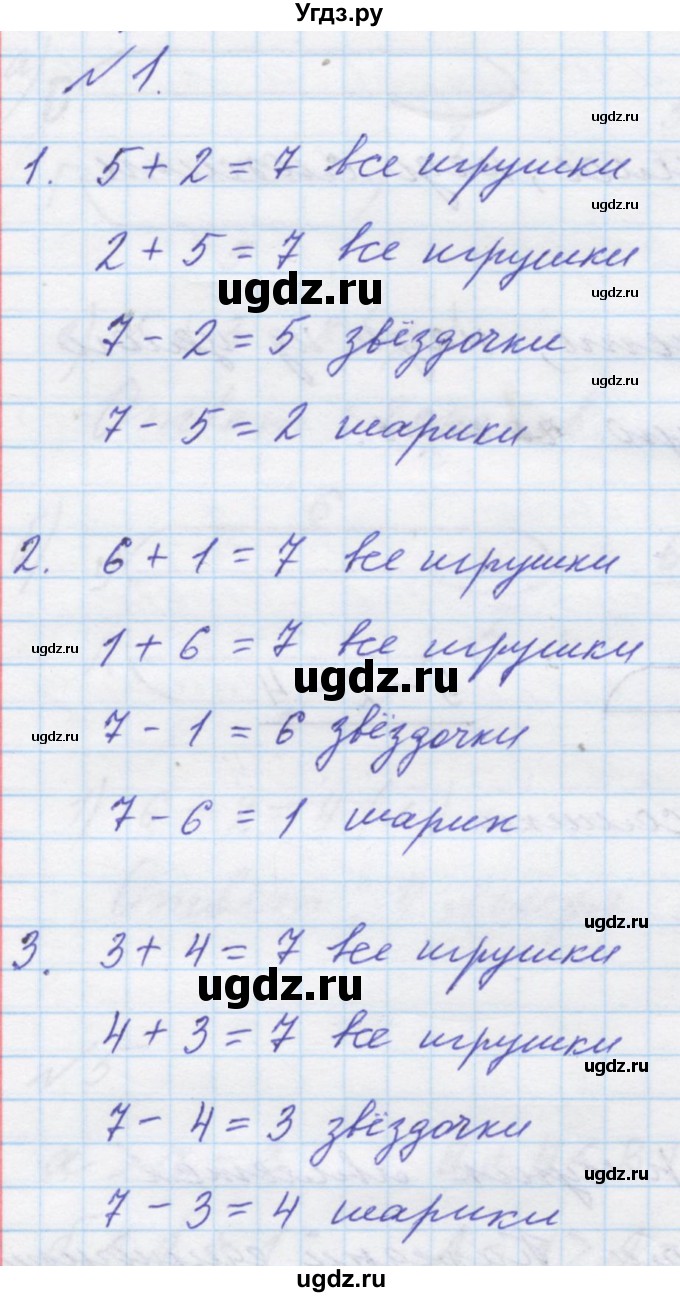 Угдз.ру
№ 1.
ugdz.ru
1. 5 + 2 = 7 все игрушки
ugdz.ru
2 + 5 = 7 все игрушки
ugdz.ru
ugdz.ru
7 - 2 = 5 звёздочки
ugdz.ru
7 - 5 = 2 шарики
2. 6 + 1 = 7 все игрушки
ugdz.ru
1 + 6 = 7 все игрушки
ugdz.ru
ugdz.ru
7 - 1 = 6 звёздочки
7 - 6 = 1 шарик
ugdz.ru
3. 3 + 4 = 7 все игрушки
ugdz.ru
4 + 3 = 7 все игрушки
ugdz.ru
7 - 4 = 3 звёздочки
ugdz.ru
7 - 3 = 4 шарики
ugdz.ru